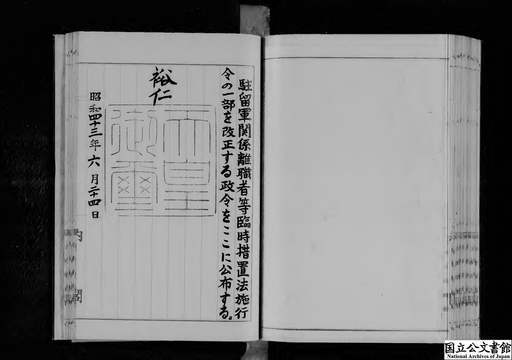 駐留軍関係離職者等臨時措置法施行
令の一部を改正する政令をここに公布する。
裕仁
天皇
御璽
昭和四十三年六月二十四日
内
閣
国立公文書館
National Archives of Japan